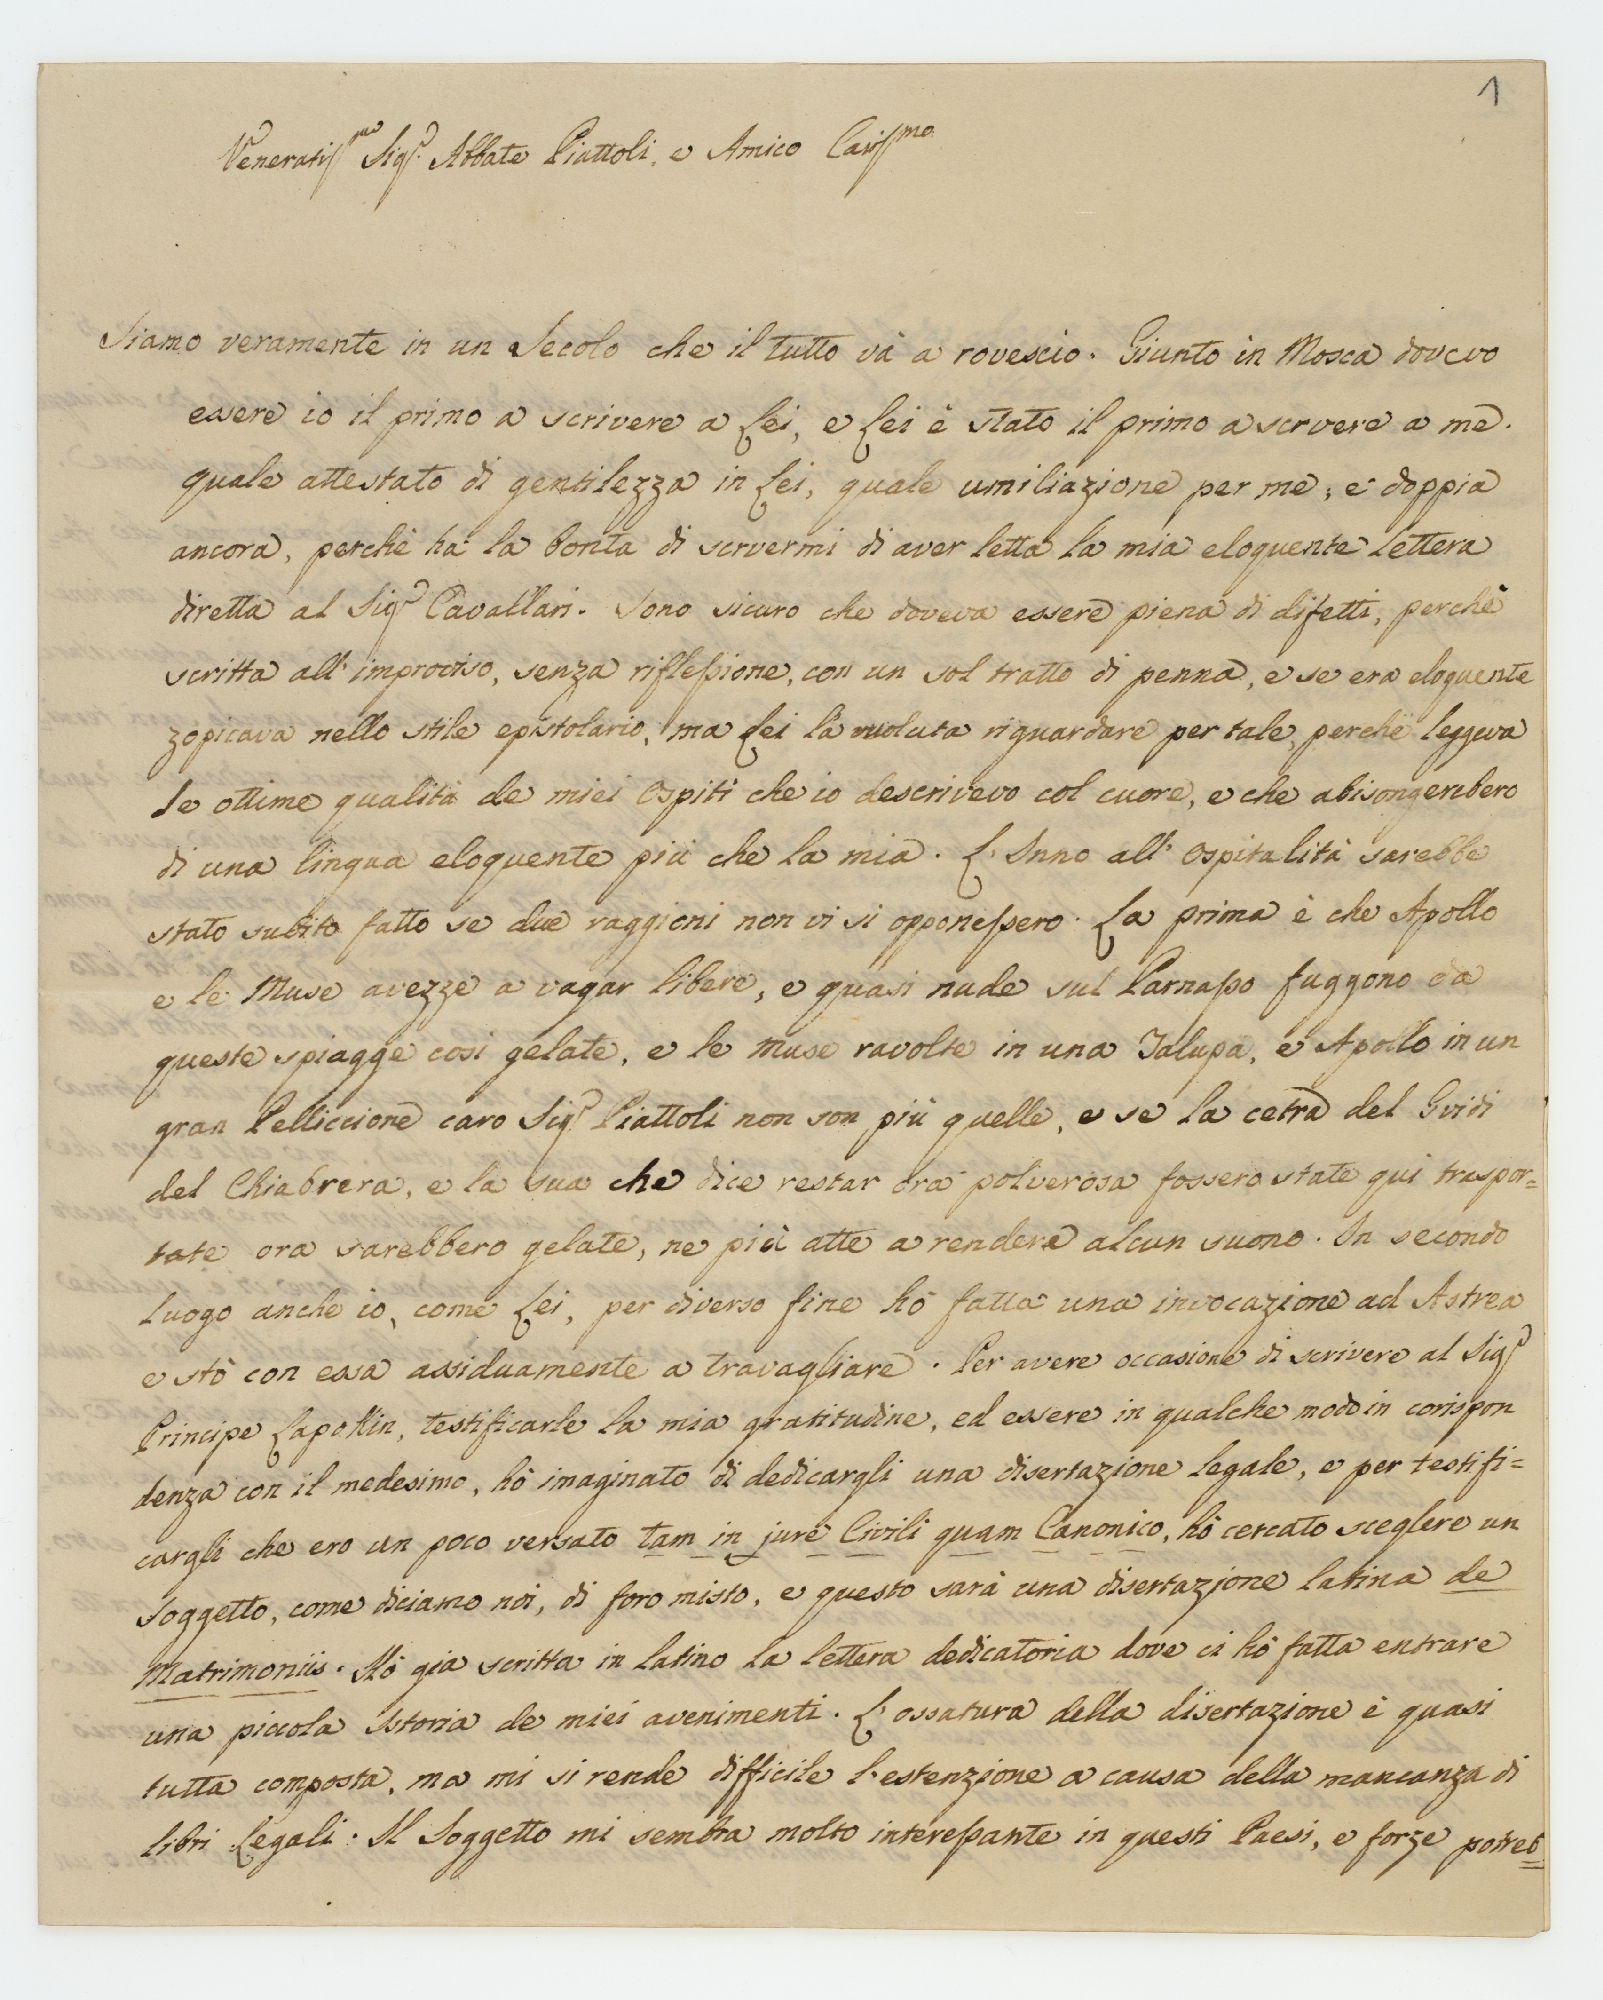 1
Veneratissmo Sigr. Abbate Piattoli, e Amico Carissmo
Siamo veramente in un Secolo che il tutto và a rovescio. Giunto in Mosca dovevo
essere io il primo a scrivere a Lei, e Lei è stato il primo a scrvere a me.
quale attestato di gentilezza in Lei, quale umiliazione per me, e doppia
ancora, perchè ha la bontà di scrvermi di aver letta la mia eloquente lettera
diretta al Sigr Cavallari. Sono sicuro che doveva essere piena di difetti, perchè
scritta all'improviso, senza riflessione, con un sol tratto di penna, e se era eloquente
zopicava nello stile epistolario, ma Lei la voluta riguardare per tale, perchè leggeva
le ottime qualità de miei Ospiti che io descrivevo col cuore, e che abisongerebero
di una lingua eloquente più che la mia. L'Inno all'Ospitalità sarebbe
stato subito fatto se due raggioni non vi si opponessero. La prima è che Apollo
e le Muse avezze a vagar libere, e quasi nude sul Parnasso fuggono da
queste spiagge così gelate, e le Muse ravolte in una Jalupa, e Apollo in un
gran Pelliccione caro Sigr Piattoli non son più quelle, e se la cetra del Guidi
del Chiabrera, e la sua che dice restar ora polverosa fossero state qui traspor=
tate ora sarebbero gelate, ne più atte a rendere alcun suono. In secondo
luogo anche io, come Lei, per diverso fine hò fatta una invocazione ad Astrea
e stò con essa assiduamente a travagliare. Per avere occasione di scrivere al Sigr
Principe Lapokin, testificarle la mia gratitudine, ed essere in qualche modo in corispon
denza con il medesimo, hò imaginato di dedicargli una disertazione legale, e per testifi=
cargli che ero un poco versato tam in jure Civili quam Canonico, hò cercato sceglere un
Soggetto, come diciamo noi, di foro misto, e questo sarà una disertazione latina de
Matrimoniis. Hò già scritta in latino la lettera dedicatoria dove ci hò fatta entrare
una piccola Istoria de miei avenimenti. L'ossatura della disertazione è quasi
tutta composta, ma mi si rende difficile l'estenzione a causa della mancanza di
libri Legali. Il Soggetto mi sembra molto interessante in questi Paesi, e forze potreb=